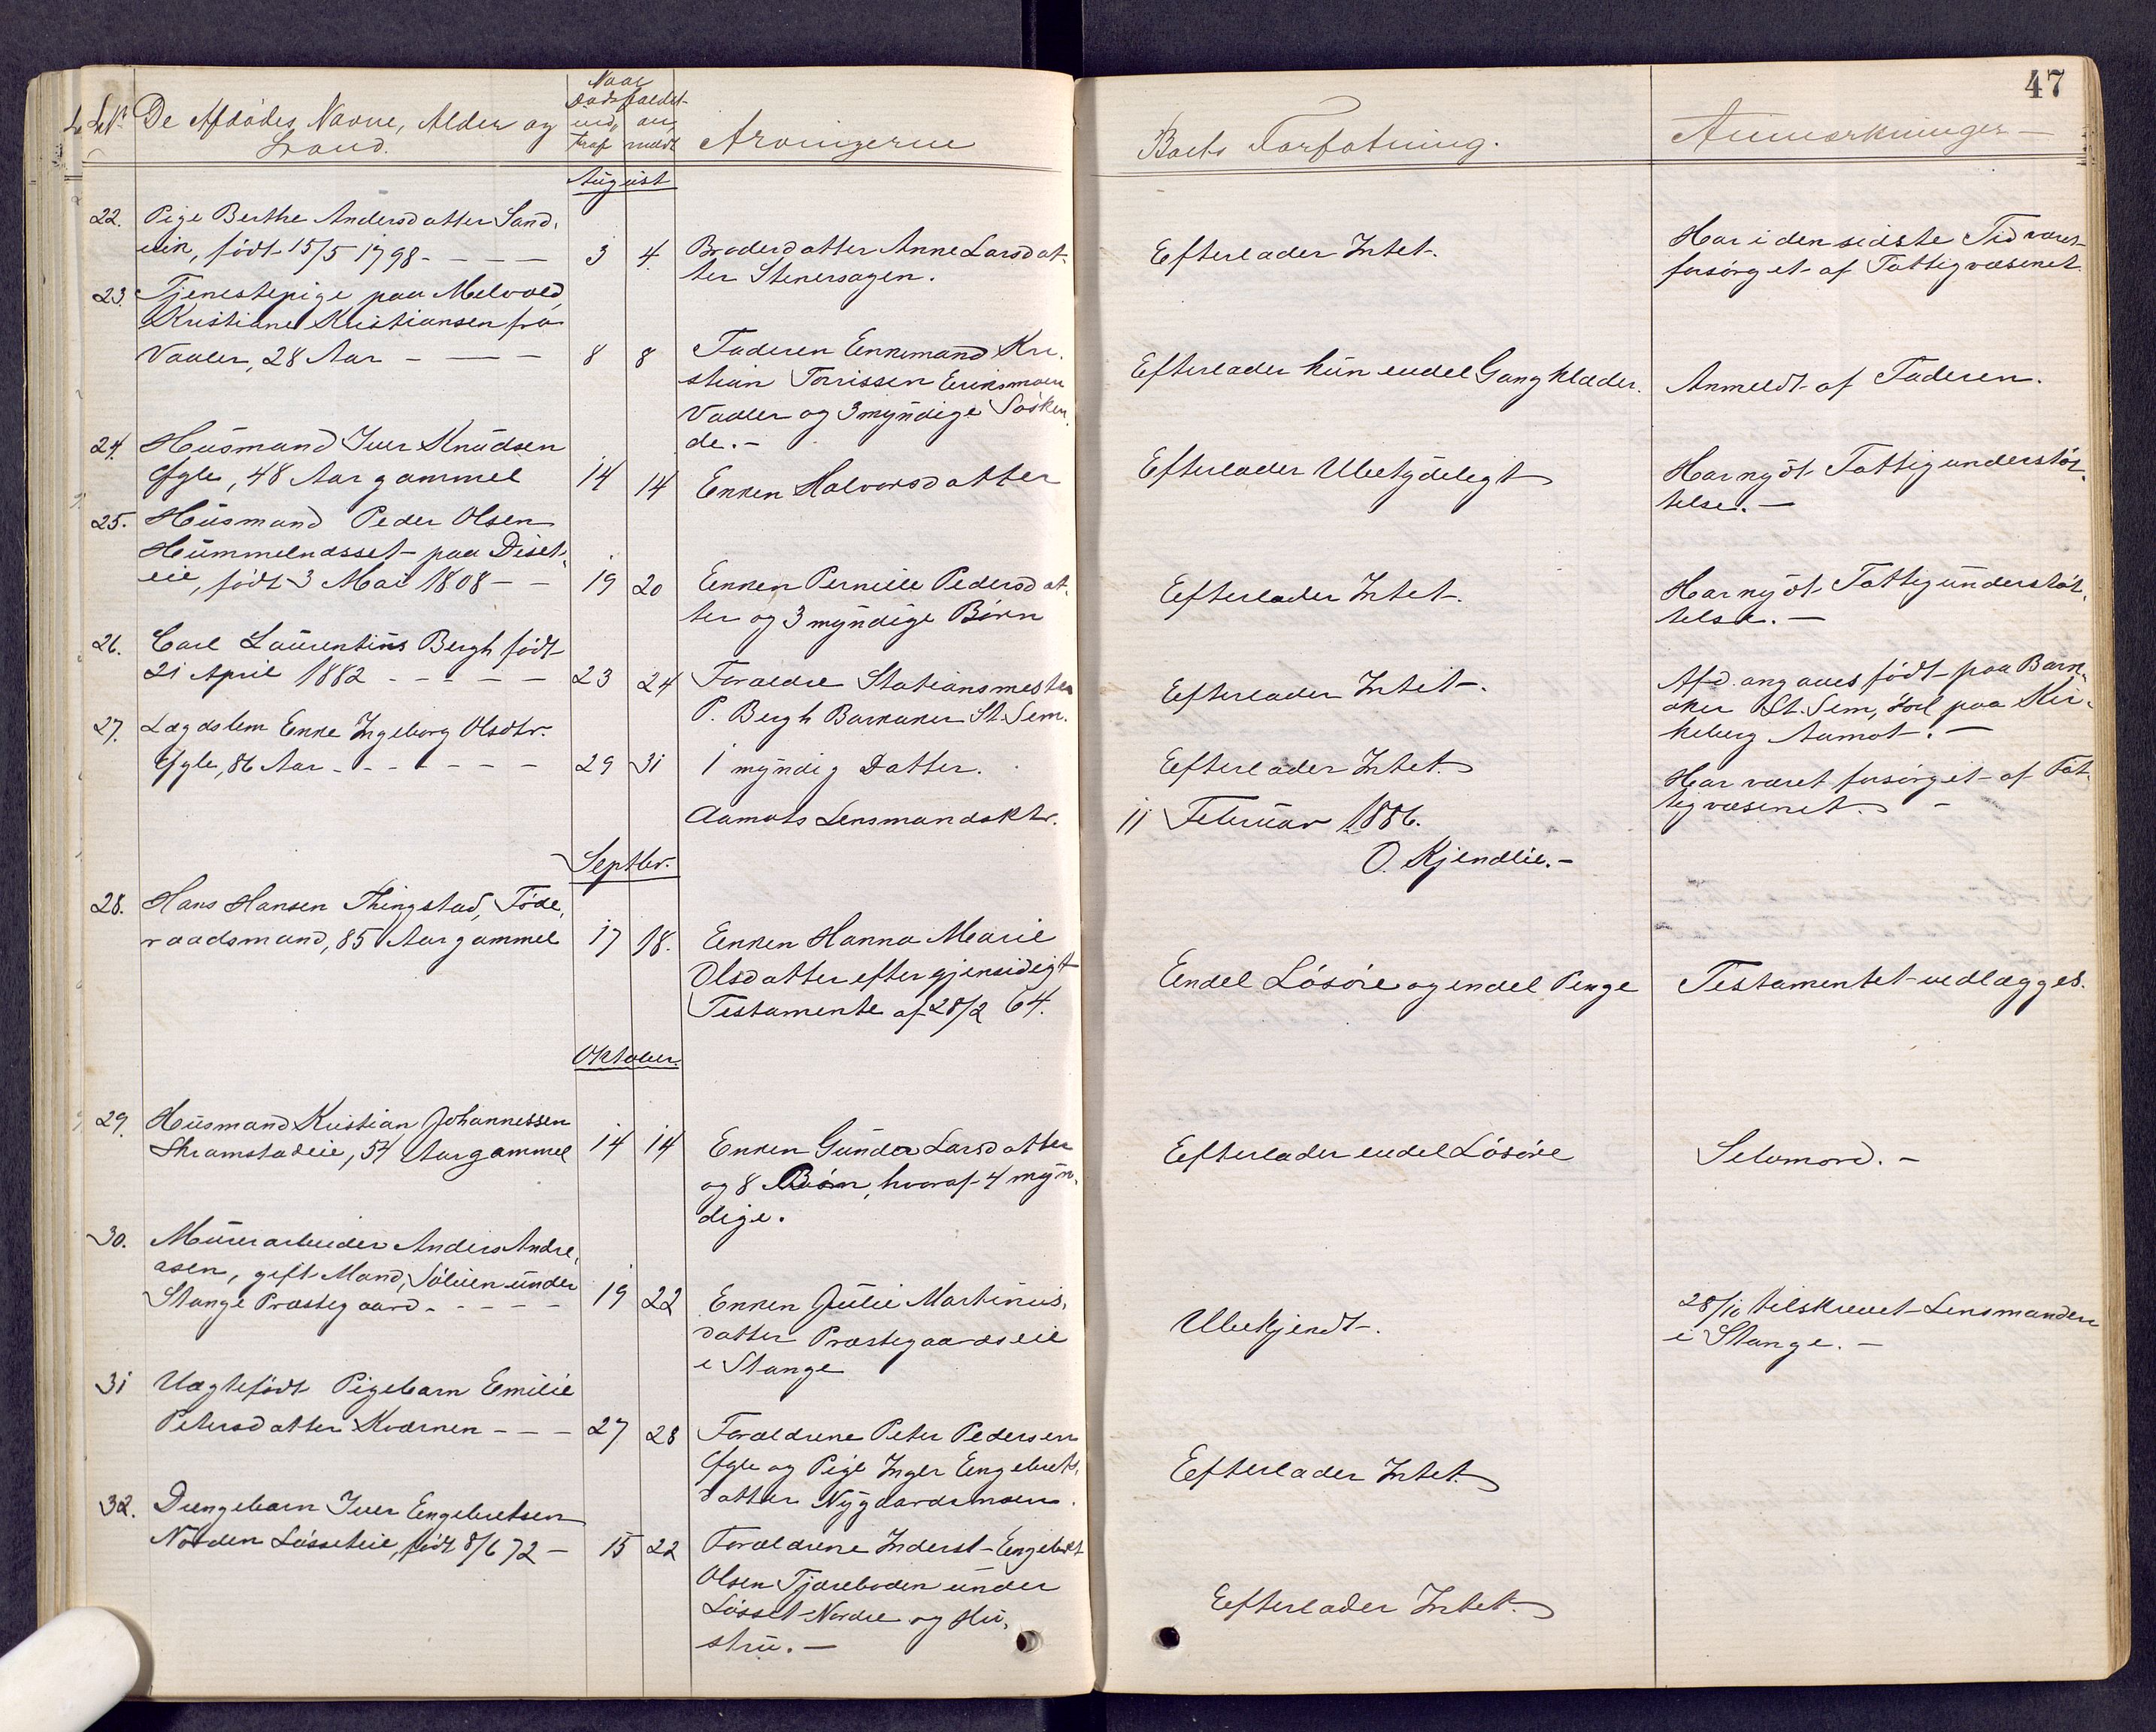 47
L. No. De Afdødes Navne, Alder og
Stand.
Naar
Dødsfaldet
ind- an-
traf meldt
Arvingerne
Boets Forfatning.
Anmærkninger
August
22. Pige Berthe Andersdatter Sand-
vik, født 15/5 1798 - - - - 3 4 Broderdatter Anne Larsdat-
ter Stenersagen.
Efterlader Intet.
Har i den sidste Tid været
forsørget af Fattigvæsenet.
23. Tjenestepige paa Melvold,
Kristiane Kristiansen fra
Vaaler, 28 Aar - - - 8 8 Faderen Enkemand Kri-
stian Torrissen Eriksmoen
Vaaler og 3 myndige Søsken-
de. -
Efterlader kun endel Gangklæder.
Anmeldt af Faderen.
24. Husmand Iver Knudsen
Ygle, 48 Aar gammel 14 14 Enken Halvorsdatter
Efterlader Ubetydeligt
Har nydt Fattigunderstøt-
telse. -
25. Husmand Peder Olsen
Hummelnæsset paa Diset-
eie, født 3 Mai 1808 - - 19 20 Enken Pernille Pedersdat-
ter og 3 myndige Børn
Efterlader Intet.
Har nydt Fattigunderstøt-
telse. -
26. Carl Laurentius Bergh født
21 April 1882 - - - - - 23 24 Forældre Stationsmester
P. Bergh Barkaker St. Sem.
Efterlader Intet.
Afd. angaves født paa Bark-
aker St. Sem, død paa Kir-
keberg Aamot. -
27. Lægdslem Enke Ingeborg Olsdtr.
Ygle, 86 Aar - - - - - - 29 31 1 myndig Datter.
Efterlader Intet.
Har været forsørget af Fat-
tigvæsenet. -
Aamots Lensmandsktr. 11 Februar 1886.
O. Kjendlie. -
Septbr.
28. Hans Hansen Thingstad, Føde-
raadsmand, 85 Aar gammel 17 18. Enken Hanna Marie
Olsdatter efter gjensidigt
Testamente af 28/2 64.
Endel Løsøre og endel Penge
Testamentet vedlægges.
Oktober.
29. Husmand Kristian Johannessen
Skramstadeie, 54 Aar gammel 14 14 Enken Gunda Larsdatter
og 8 Børn, hvoraf 4 myn-
dige.
Efterlader endel Løsøre
Selvmord. -
30. Murerarbeider Anders Andre-
asen, gift Mand, Sølien under
Stange Præstegaard - - - - - 19 22 Enken Julie Martinus-
datter Præstegaardseie
i Stange
Ubekjendt.
28/10 tilskrevet Lensmanden
i Stange. -
31 Uægtefødt Pigebarn Emilie
Petersdatter Kværnen - - - 27 28 Forældrene Peter Pedersen
Ygle og Pige Inger Engebrets-
datter Nygaardsmoen.
Efterlader Intet
32. Drengebarn Iver Engebretsen
Norden Løsseteie, født 8/6 72 - 15 22 Forældrene Inderst Engebret
Olsen Tjæreboden under
Løsset Nordre og Hu-
stru. -
Efterlader Intet.